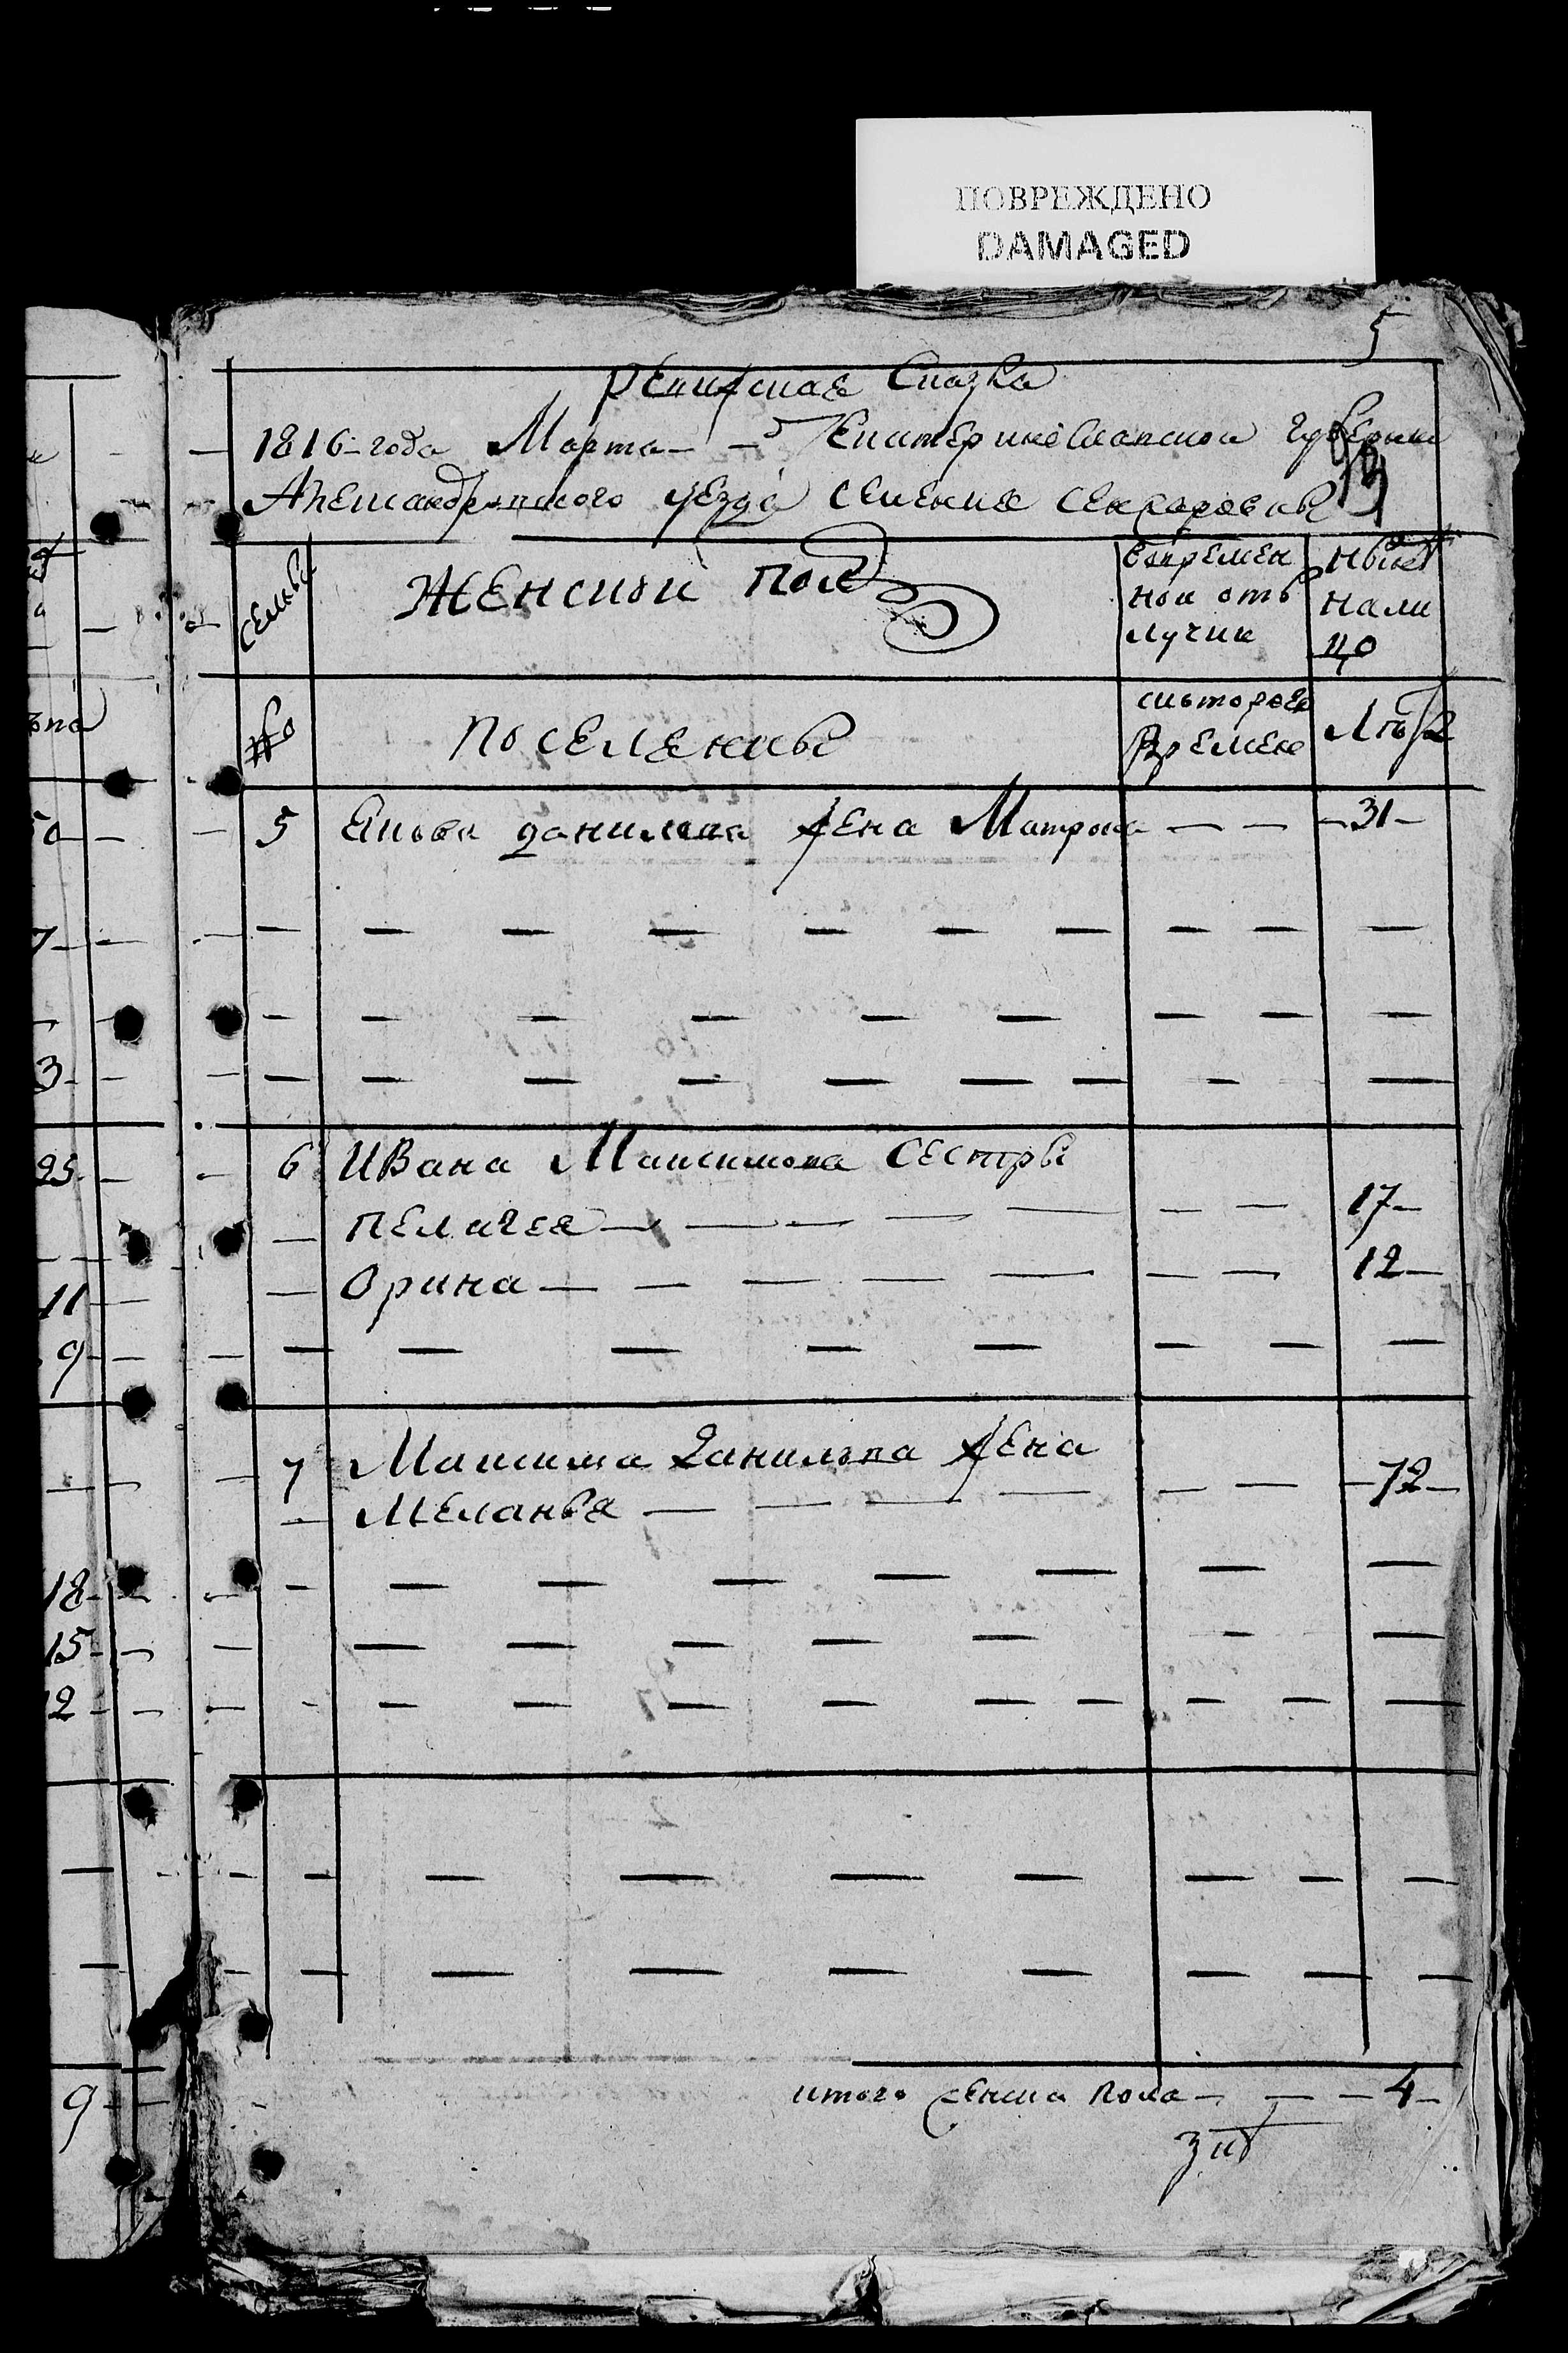 ПОВРЕЖДЕНО
DAMAGED
5
ревиская Сказка
1816 года Марта — 5 Екатеринославской губернии
Александровского уезда селения
семьи
Женской пол
вовремен
ной отъ
лучки
ныне
нали
цо
№
поселяны
съкоторого
времени
Лѣта
5 данилова жена Матрона — — 31 —
6 Ивана Максимова сестры
пелагея — — — — — 17 —
Орина — — — — — 12 —
7 Максима данилова жена
Меланья — — — — — 72 —
итого женска пола — — — 4 —
50
7
3
25
11
9
18
15
12
9